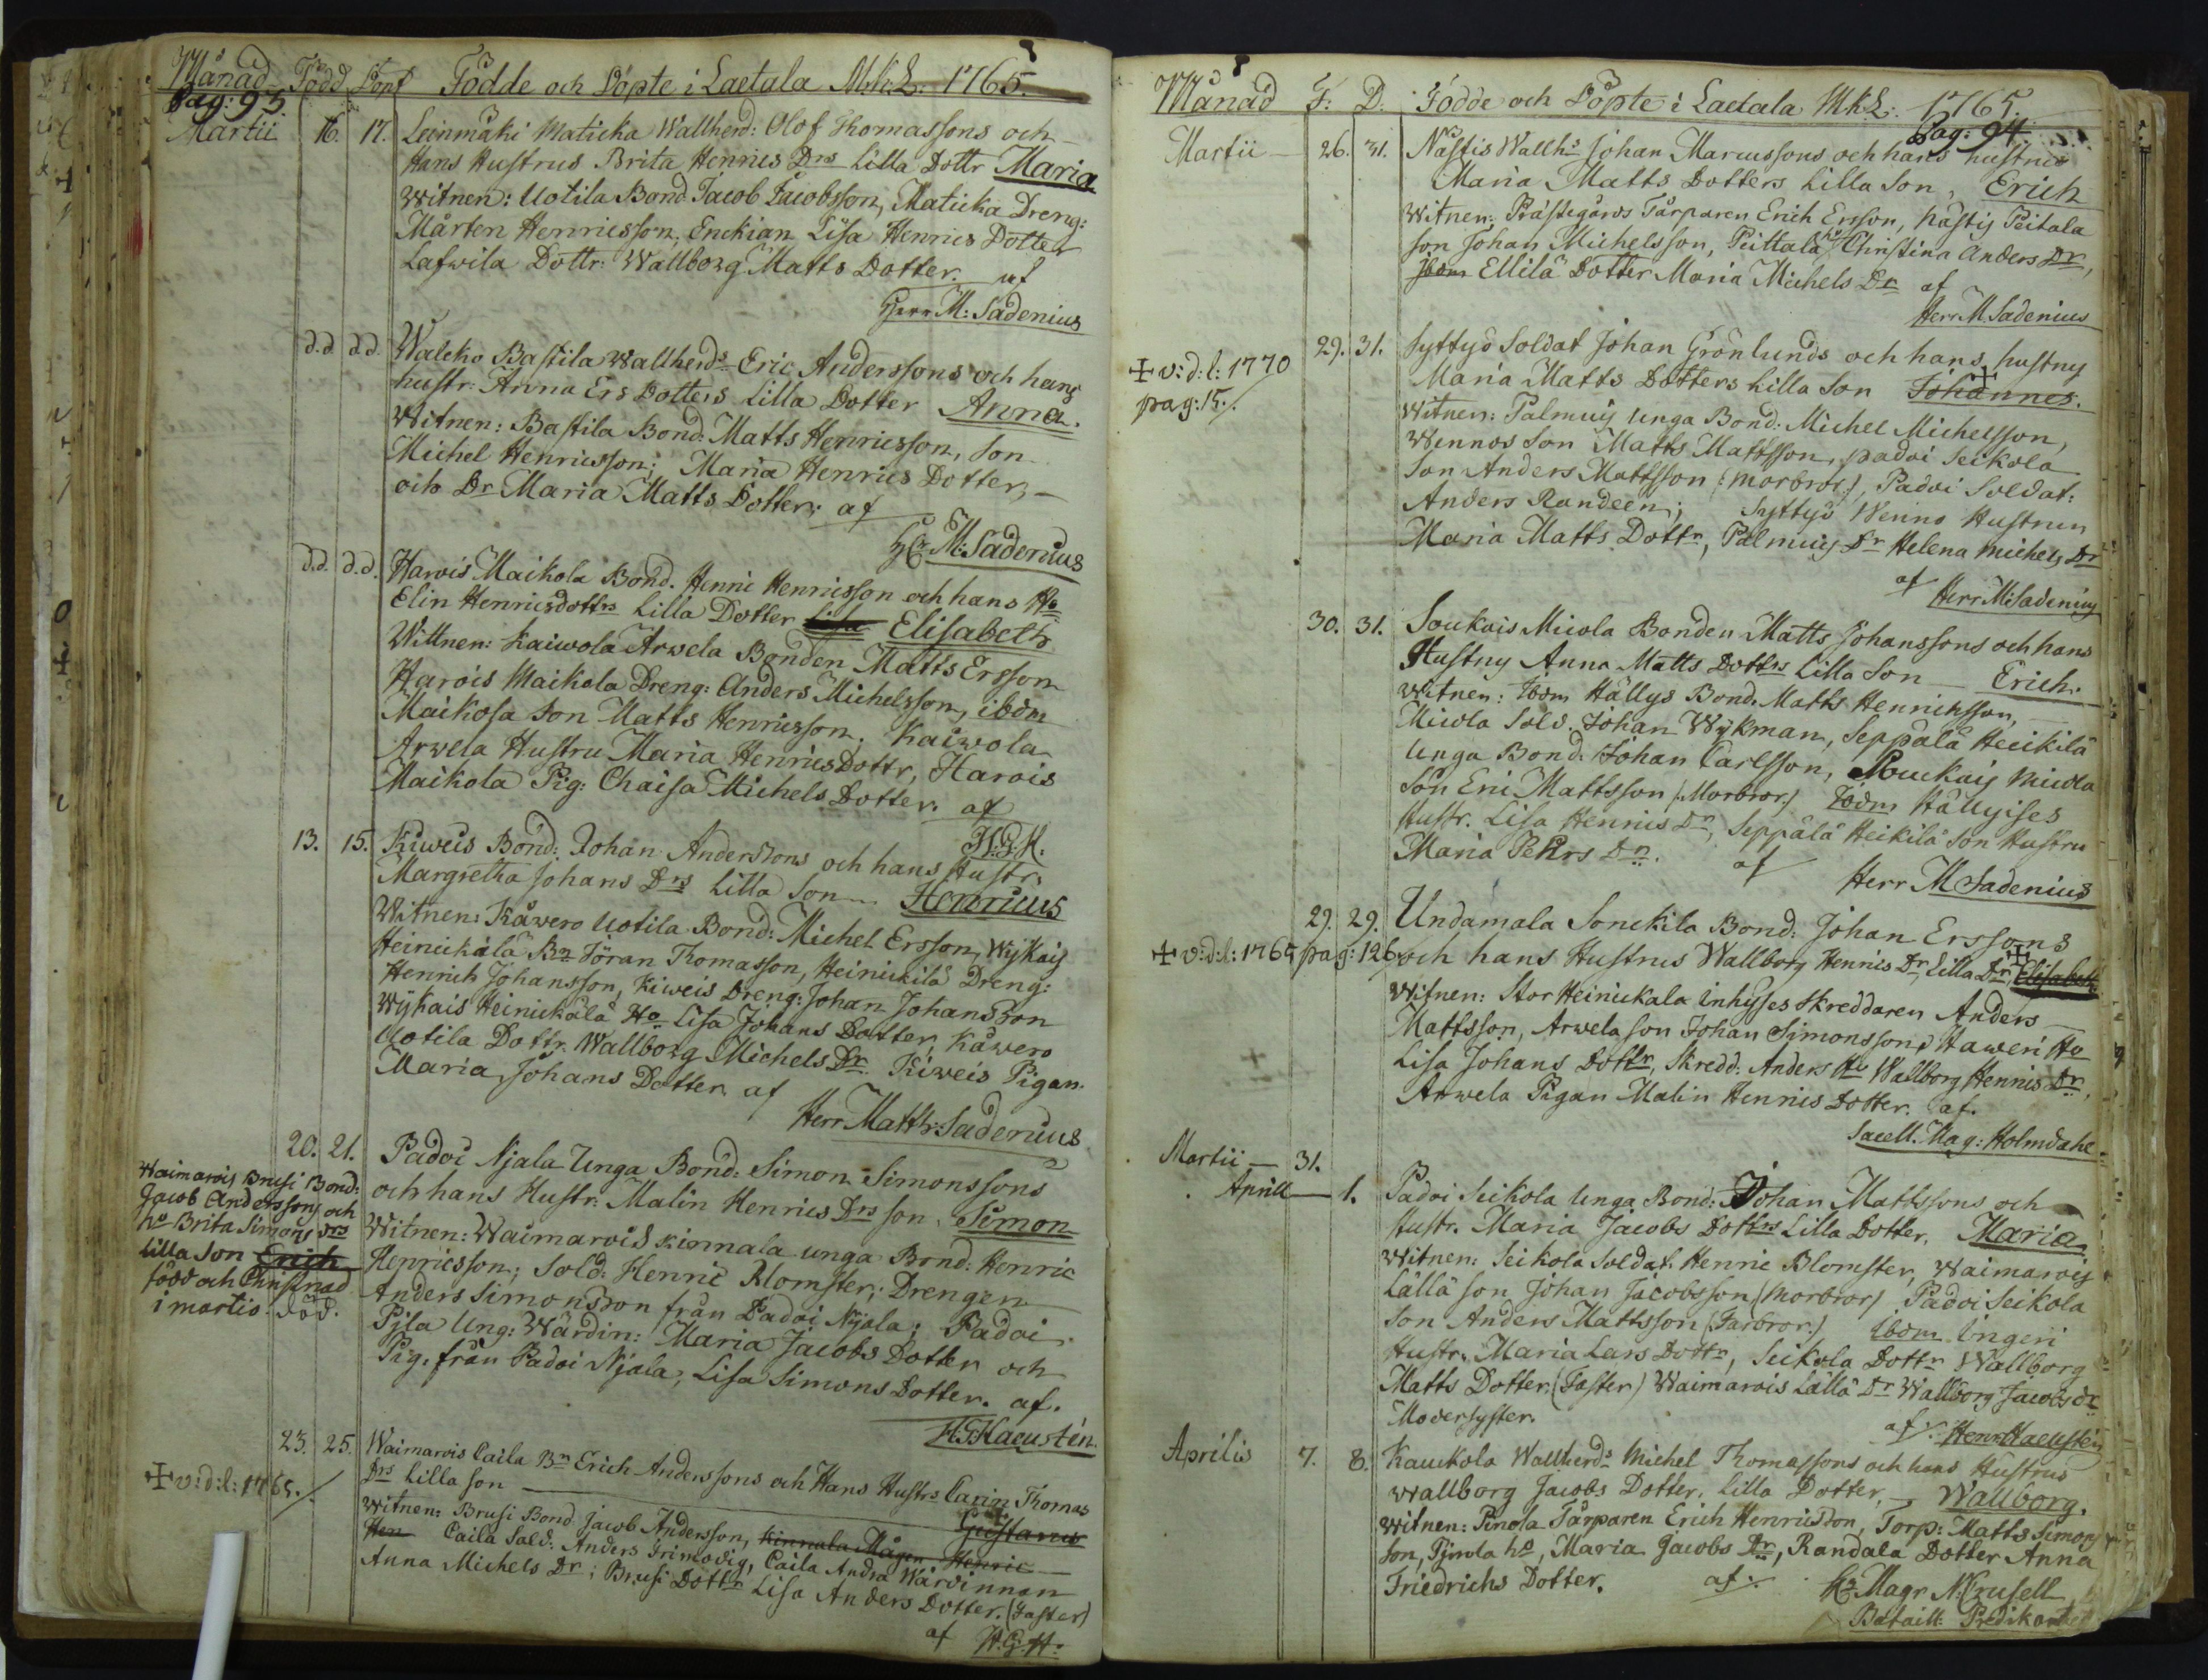 Månad Född Döpt Födde och Döpte i Laetala M.k.L. 1765.
Pag: 93.
Martii 16. 17. Leinmäki Maticka Wallherd: Olof Thomassons och
Hans Hustrus Brita Henrics Drs Lilla Dottr Maria
Witnen: Uotila Bond. Jacob Jacobsson, Maticka Dreng:
Mårten Henricsson, Enckian Lisa Henrics Dotter
Lafwila Dottr: Wallborg Matts Dotter. af
Herr M: Sadenius
d.d. d.d. Walcko Bastila Wallherds Eric Anderssons och hans
hustr: Anna Ers Dotters Lilla Dotter Anna.
Witnen: Bastila Bond: Matts Henricsson, Son
Michel Henricsson; Maria Henrics Dotter,
och Dr Maria Matts Dotter; af
Hr M: Sadenius
d.d. d.d. Harois Maikola Bond. Henric Henricsson och hans Ho
Elin Henricsdottrs Lilla Dotter Lisa Elisabeth
Wittnen: Kaiwola Arwela Bonden Matts Ersson
Harois Maikola Dreng: Anders Michelsson, ibdm
Maikola Son Matts Henricsson, Kaiwola
Arwela Hustru Maria Henrics Dottr, Harois
Maikola Pig: Chaisa Michels Dotter. af
H.G.H.
13. 15. Kiweis Bond: Johan Anderssons och hans Hustr:
Margretha Johans Drs Lilla Son Henricus
Witnen: Kåwero Uotila Bond: Michel Ersson, Wijkais
Heinickälä Bn Jöran Thomasson, Heinickilä Dreng:
Henrich Johansson, Kiweis Dreng: Johan Johansson
Wijkais Heinickälä Ho Lisa Johans Dotter, Kåwero
Uotila Dottr. Wallborg Michels Dr. Kiweis Pigan
Maria Johans Dotter af
Herr Matth: Sadenius
20. 21. Padoi Njala Unga Bond: Simon Simonssons
och hans Hustr: Malin Henrics Drs son Simon
Witnen: Waimarois Kinnala unga Bond: Henric
Henricsson; Sold: Henric Blomster; Drengen
Anders Simonsson från Padoi Njala; Padoi
Pjla Ung: Wärdin: Maria Jacobs Dotter och
Pig. från Padoi Njala, Lisa Simons Dotter. af.
H.G.Haeustén.
Waimarois Brusi Bond:
Jacob Anderssons och
ho Brita Simons Drs
Lilla Son Erich
född och Christnad
i martio. död.
23. 25. Waimarois Caila Bn Erich Anderssons och Hans Hustrs Carin Thomas
Drs Lilla son Gustavus
✠ v:d:l: 1765.
Witnen: Brusi Bond Jacob Andersson, Kinnala Mågen Henric
Hen Caila Sold: Anders Frimodig, Caila Andra Wärdinnan
Anna Michels Dr; Brusi Dottr Lisa Anders Dotter. (Faster)
af H.G.H.
Månad F: D. Födde och Döpte i Laetala MkL: 1765.
Pag: 94.
Martii 26. 31. Nästis Wallhs Johan Marcussons och hans hustrus
Maria Matts Dotters Lilla Son, Erich
Witnen: Prästegårds Tårparen Erich Ersson, Nästis Peitala
son Johan Michelsson, Peittala ho Christina Anders Dr,
jbdm Ellilä Dotter Maria Michels Dr af
Herr M. Sadenius
29. 31. Syttyö Soldat Johan Grönlunds och hans hustrus
Maria Matts Dotters Lilla Son Johannes.
✠ v:d:l: 1770
pag: 15.
Witnen: Palmuis Unga Bond. Michel Michelsson,
Wennos Son Matts Mattsson, padoi Seikola
Son Anders Mattsson (Morbror), Padoi Soldat:
Anders Randeen; Syttyö Wenno Hustrun
Maria Matts Dottr, Palmuis Dr Helena Michels Dr
af Herr M: Sadenius
30. 31. Soukais Micola Bonden Matts Johanssons och hans
Hustrus Anna Matts Dottrs Lilla Son Erich.
Witnen: Ibdm Hällys Bond. Matts Henrichsson,
Micola Sold. Johan Wijkman, Seppälä Heickilä
Unga Bond. Johan Carlsson, Soukais Micola
Son Eric Mattsson (Morbror.) Ibdm Hällyises
Hustr. Lisa Henrics Dr, Seppälä Heikilä Son Hustru
Maria Pehrs Dr. af
Herr M Sadenius
29. 29. Undamala Sonckila Bond: Johan Erssons
✠ v:d:l: 1765 pag: 126. och hans Hustrus Wallborg Henrics Dr, Lilla Dr, Elisabeth.
Witnen: Stor Heinickala inhysses Skreddaren Anders
Mattsson, Arwela son Johan Simonsson, Haweri Ho
Lisa Johans Dottr, Skredd: Anders Ho Wallborg Henrics Dr,
Arwela Pigan Malin Henrics Dotter. af.
Sacell. Mag: Holmdahl
Martii 31.
Aprill 1. Padoi Seikola Unga Bond: Johan Mattssons och
Hustr. Maria Jacobs Dottrs Lilla Dotter. Maria.
Witnen: Seikola Soldat. Henric Blomster, Waimarois
Lällä son Johan Jacobsson (Morbror) Padoi Seikola
Son Anders Mattsson (Farbror.) Ibdm Ingeri
Hustr. Maria Lars Dottr, Seikola Dottr Wallborg
Matts Dotter (Faster) Waimarois Lällä Dr Wallborg Jacobs Dr
Modersyster.
af: Henr Haeustén
Aprilis 7. 8. Kauckola Wallherds Michel Thomassons och hans Hustrus
Wallborg Jacobs Dotter, Lilla Dotter, Wallborg.
Witnen: Pinola Tårparen Erich Henricsson, Torp: Matts Simons
son, Pjnola ho, Maria Jacobs Dr, Randala Dotter Anna
Friedrichs Dotter. af: Hr Magr N. Crusell
Bataill: Predikant